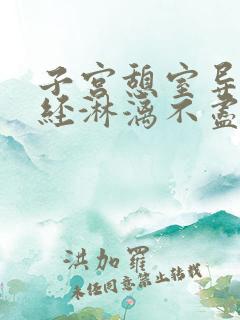 子宫憩室导
经淋漓不尽
洪加羅
未经同意禁止转载